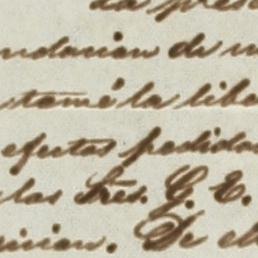 la pres
ndacion de m
tomé la libe
efectos pedidos
las Sres. G. E.
icion. De el